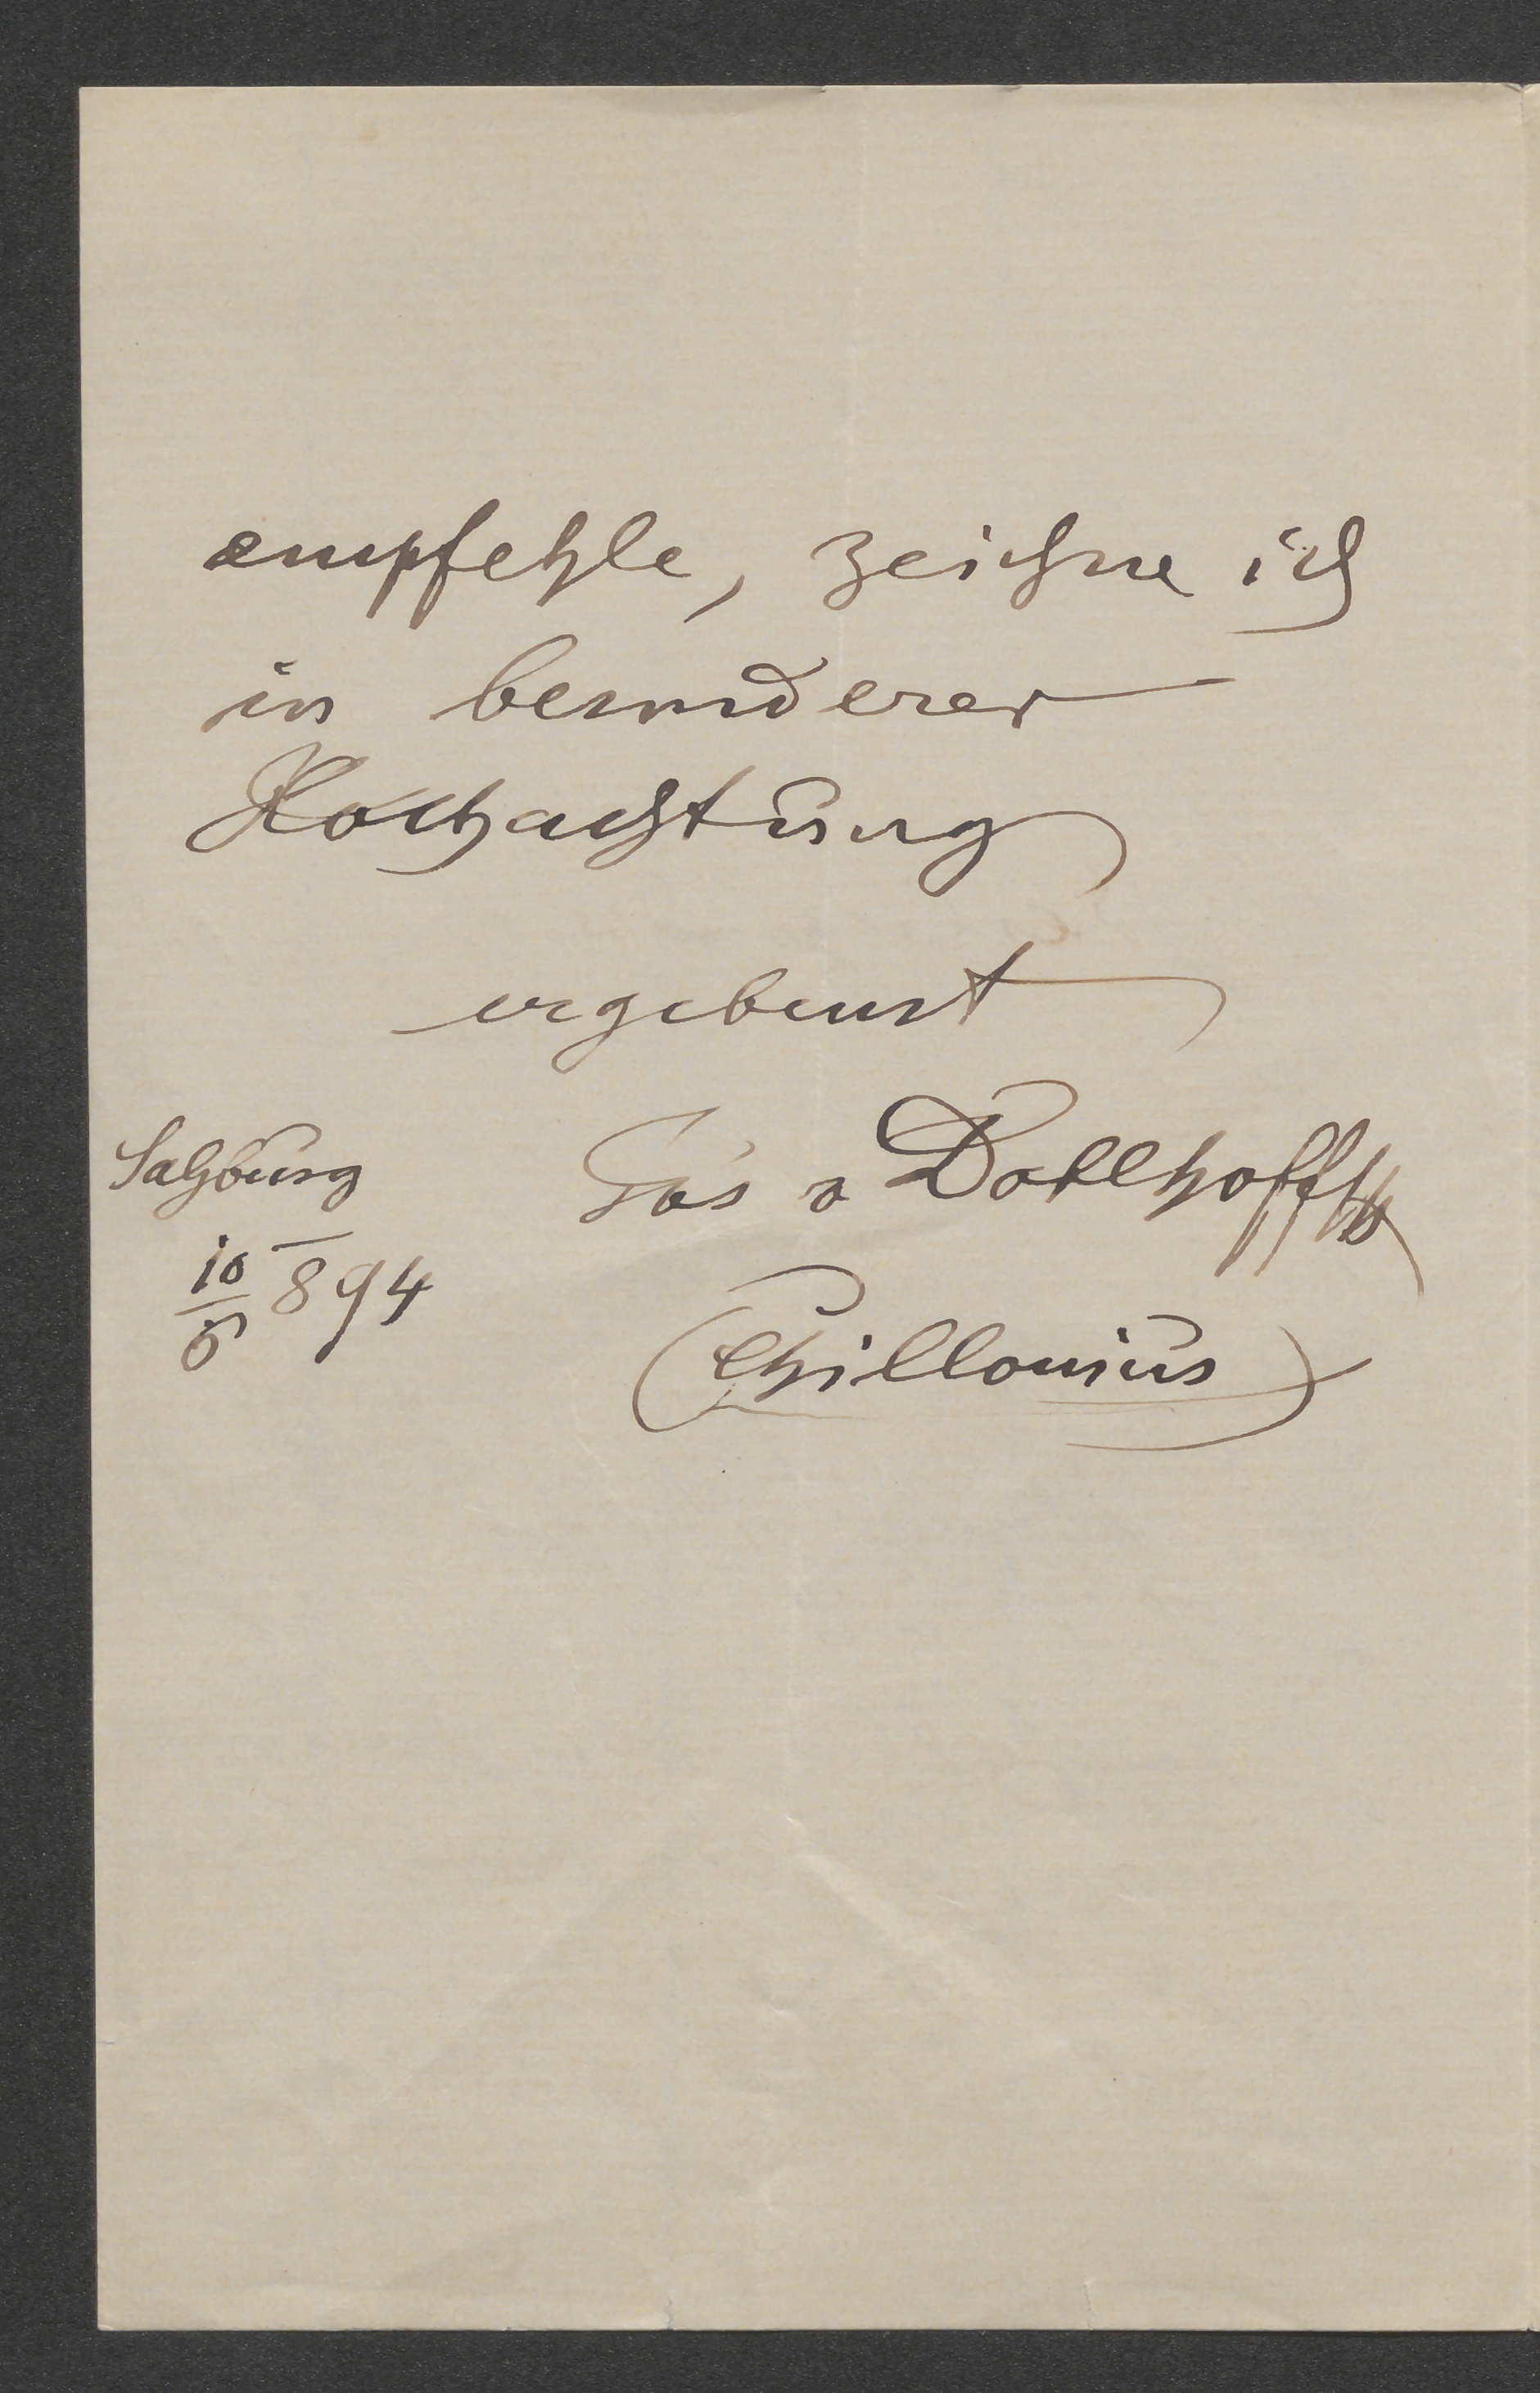 empfehle, zeichne ich
in besonderer
Hochachtung
ergebenst
Salzburg
Jos v Doblhoff
10/5 894
(Chillonius)